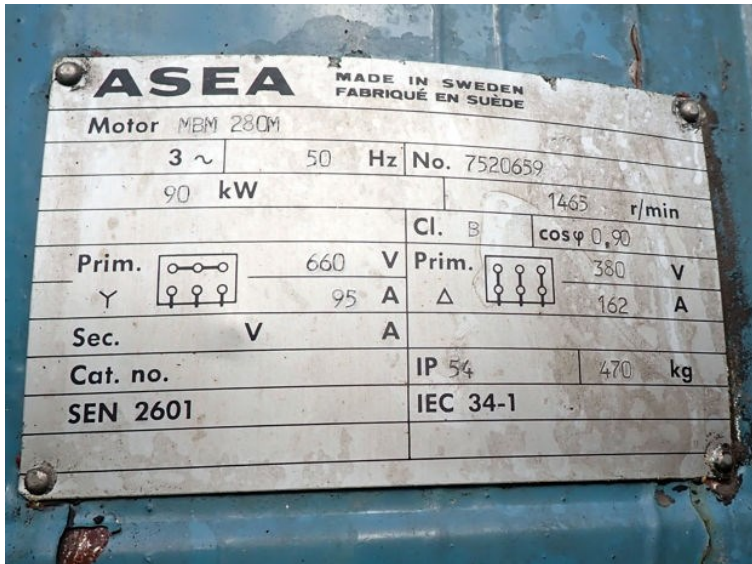 ASEA MADE IN SWEDEN
FABRIQUÉ EN SUÈDE
Motor MBM 280M
3 ~ 50 Hz No. 7520659
90 kW 1465 r/min
Cl. B cosφ 0,90
Prim. 660 V Prim. 380 V
Y 95 A Δ 162 A
Sec. V A
Cat. no. IP 54 470 kg
SEN 2601 IEC 34-1